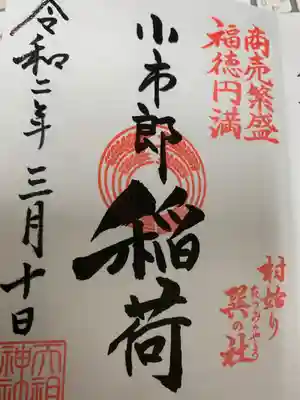 商売繁盛
福徳円満
村始り
巽の社
たつみのやしろ
小市郎稲荷
令和二年三月十日